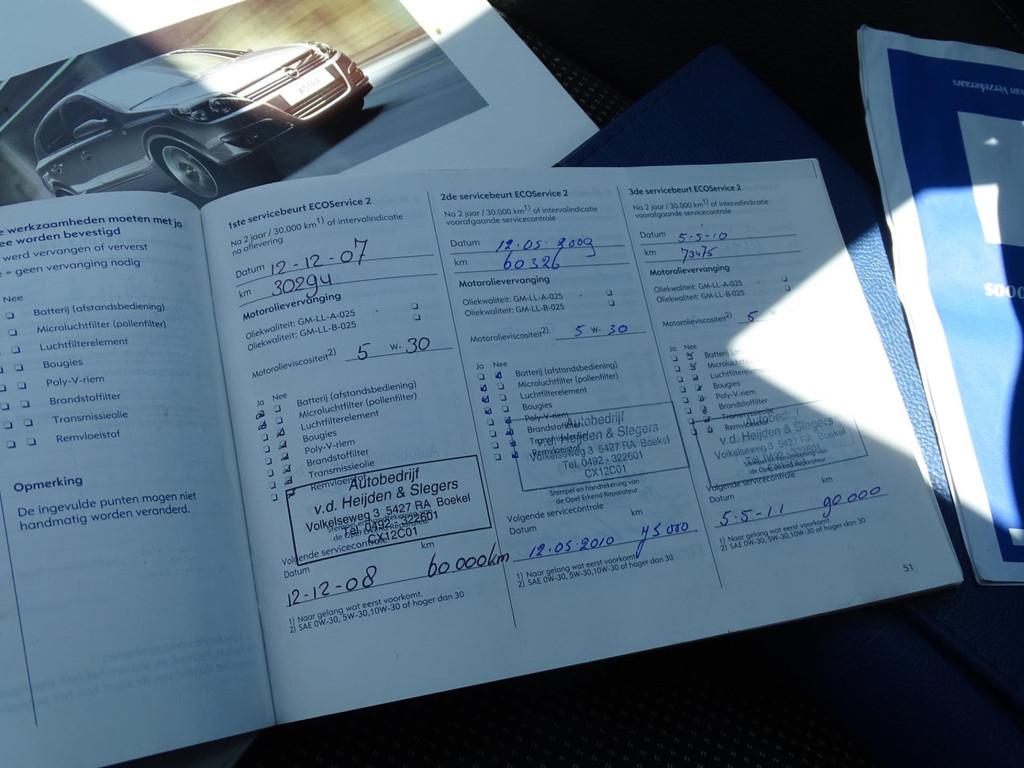 e werkzaamheden moeten met ja
ee worden bevestigd
werd vervangen of ververst
= geen vervanging nodig
Nee
Batterij (afstandsbediening)
Microluchtfilter (pollenfilter)
Luchtfilterelement
Bougies
Poly-V-riem
Brandstoffilter
Transmissieolie
Remvloeistof
Opmerking
De ingevulde punten mogen niet
handmatig worden veranderd.
1ste servicebeurt ECOService 2
Na 2 jaar / 30.000 km1) of intervalindicatie
na aflevering
Datum 12-12-07
km 30294
Motorolievervanging
Oliekwaliteit: GM-LL-A-025
Oliekwaliteit: GM-LL-B-025
Motorolieviscositeit2) 5 W- 30
Ja Nee
Batterij (afstandsbediening)
Microluchtfilter (pollenfilter)
Luchtfilterelement
Bougies
Poly-V-riem
Brandstoffilter
Transmissieolie
Remvloeistof
Autobedrijf
v.d. Heijden & Slegers
Volkelseweg 3 5427 RA Boekel
Tel. 0492 - 322601
CX12C01
Volgende servicecontrole
Datum km
12-12-08 60.000km
1) Naar gelang wat eerst voorkomt.
2) SAE 0W-30, 5W-30,10W-30 of hoger dan 30
2de servicebeurt ECOService 2
Na 2 jaar / 30.000 km1) of intervalindicatie
voorafgaande servicecontrole
Datum 12.05.2009
km 60326
Motorolievervanging
Oliekwaliteit: GM-LL-A-025
Oliekwaliteit: GM-LL-B-025
Motorolieviscositeit2) 5 W- 30
Ja Nee
Batterij (afstandsbediening)
Microluchtfilter (pollenfilter)
Luchtfilterelement
Bougies
Poly-V-riem
Brandstoffilter
Autobedrijf
v.d. Heijden & Slegers
Volkelseweg 3 5427 RA Boekel
Tel. 0492 - 322601
CX12C01
Stempel en handtekening van
de Opel Erkend Reparateur
Volgende servicecontrole
Datum km
12.05.2010 75000
1) Naar gelang wat eerst voorkomt.
2) SAE 0W-30, 5W-30,10W-30 of hoger dan 30
3de servicebeurt ECOService 2
Na 2 jaar / 30.000 km1) of intervalindicatie
voorafgaande servicecontrole
Datum 5-5-10
km 73475
Motorolievervanging
Oliekwaliteit: GM-LL-A-025
Oliekwaliteit: GM-LL-B-025
Motorolieviscositeit2) 5
Ja Nee
Batterij
Microluchtfilter (pollenfilter)
Luchtfilterelement
Bougies
Poly-V-riem
Brandstoffilter
Transmissieolie
Remvloeistof
Autobedrijf
v.d. Heijden & Slegers
Volkelseweg 3 5427 RA Boekel
Tel. 0492 - 322601
CX12C01
Stempel en handtekening van
de Opel Erkend Reparateur
Volgende servicecontrole
Datum km
5-5-11 90.000
1) Naar gelang wat eerst voorkomt.
2) SAE 0W-30, 5W-30,10W-30 of hoger dan 30
51
van Verzekeraars